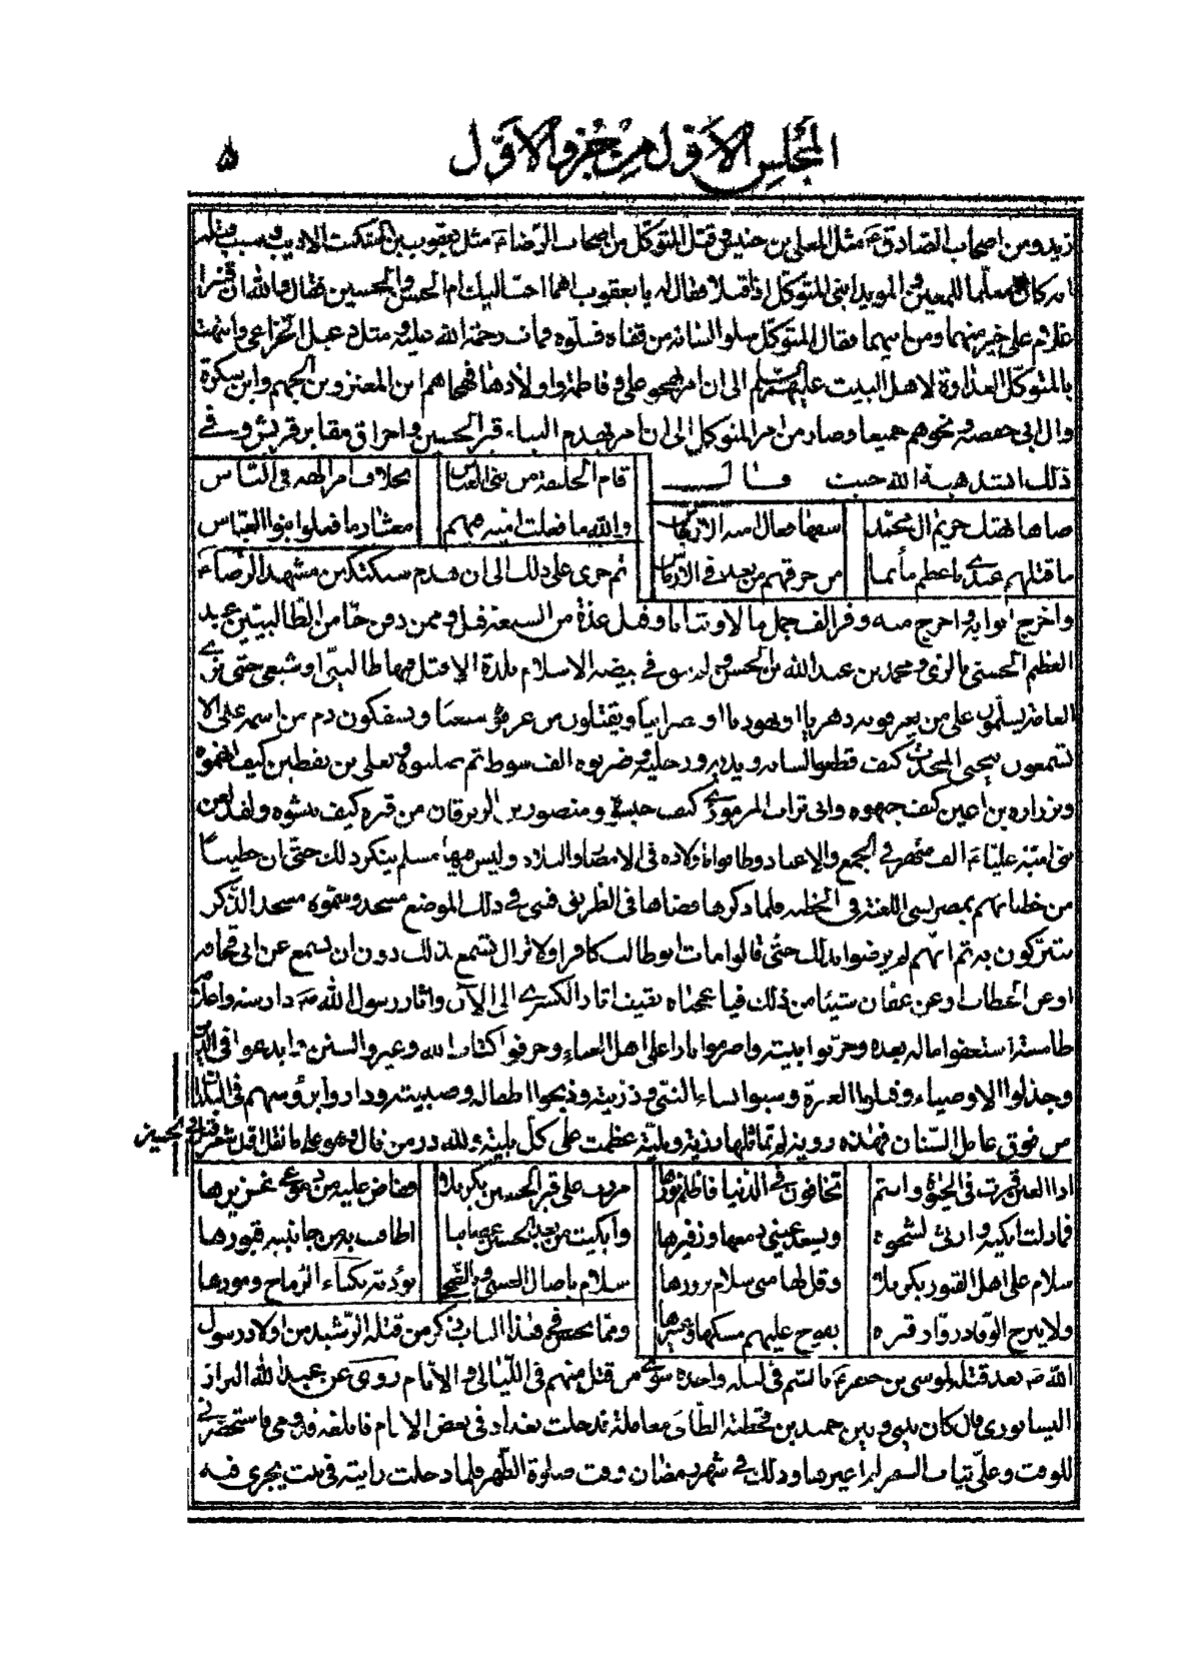 المجلس الاول من جزو الاول
۵
زيد ومن اصحاب الصادق ع مثل المعلى بن خنيس وقتل المتوكل من اصحاب الرضا ع مثل يعقوب بن السكيت الاديب وسبب قتله
انه كان معلما للمعين والمويد ابنى المتوكل اذ اقبلا فقال له يا يعقوب اهما احب اليك ام الحسن والحسين فقال والله ان قنبرا
غلام على خير منهما ومن ابيهما فقال المتوكل سلوا لسانه من قفاه فسلوه فمات رحمة الله عليه ومثل دعبل الخزاعى وانتهت
بالمتوكل العداوة لاهل البيت عليهم السلم الى ان امر بهجو على وفاطمة واولادها فهجاهم ابن المعتز وبن الجهم وابن سكرة
وال ابى حفصة ونحوهم جميعا وصار من امر المتوكل الى ان امر بهدم البناء قبر الحسين واحراق مقابر قريش وفى
ذلك انشد هبة الله حيث قال
قام الخليفة من بنى العباس بخلاف امر الهه فى الناس
ضاها بهتك حريم ال محمد سفها فعال امية الارجاس
والله ما فعلت امية فيهم معشار ما فعلوا بنو العباس
ما قتلهم عندى باعظم مأتما من حرقهم من بعد فى الارماس
ثم جرى على ذلك الى ان هدم سبكتكين مشهد الرضا ع
واخرج ابوابه واخرج منه وقر الف جمل مالا وثيابا وقتل عدة من الشيعة قيل وممن دفن حيا من الطالبيين عبد
العظيم الحسنى بالرى ومحمد بن عبد الله بن الحسن ولم يبق فى بيضة الاسلام بلدة الا قتل فيها طالبى او شيعى حتى ترى
العامة يسلمون على من يعرفونه دهريا او يهوديا او نصرانيا ويقتلون من عرفوه شيعيا ويسفكون دم من اسمه على الا
تسمعون بيحيى المحدث كيف قطعوا لسانه ويديه ورجليه وضربوه الف سوط ثم صلبوه وبعلى بن يقطين كيف اتهموه
وبزراره بن اعين كيف جبهوه وابى تراب المرموزى كيف حبسوه ومنصور بن الزبرقان من قبره كيف نبشوه ولقد لعن
بنى امية عليا ع الف شهر فى الجمع والاعياد وطافوا باولاده فى الامصار والبلاد وليس فيها مسلم ينكر ذلك حتى ان خطيبا
من خطبائهم بمصر نسى اللعنة فى الخطبة فلما ذكرها قضاها فى الطريق فبنى فى ذلك الموضع مسجد وسموه مسجد الذكر
يتبركون به ثم انهم لم يرضوا بذلك حتى قالوا مات ابو طالب كافرا ولا تزال تسمع بذلك دون ان تسمع عن ابى قحافه
او عن الخطاب او عن عفان شيئا من ذلك فيا عجباه بقيت اثار الكسرى الى الان واثار رسول الله ص دارسة واعلامه
طامسة استعفوا ماله بعده وخربوا بيته واضرموا نارا على اهل العباء وحرفوا كتاب الله وغيروا السنن وابدعوا فى الدين
وخذلوا الاوصياء وقتلوا العترة وسبوا نساء النبى وذريته وذبحوا اطفاله وصبيته وداروا برؤسهم فى البلدان
من فوق عامل السنان فهذه رزية لم تماثلها رزية وبلية عظمت على كل بلية ولله در من قال وهو على ما نقل اول شعر قيل
فى الحسين
اذا العين قرت فى الحيوة وانتم تخافون فى الدنيا فاظلم نورها
مررت على قبر الحسين بكربلا ففاض عليه من دموعى غزيرها
فما زلت ابكيه وارثى لشجوه ويسعد عينى دمعها وزفيرها
وابكيت من بعد الحسين عصايبا اطافت به من جانبيه قبورها
سلام على اهل القبور بكربلا وقل لها منى سلام يزورها
سلام باصال العشى وبالضحى تؤديه نكباء الرماح ومورها
ولا يبرح الوفاد زوار قبره يفوح عليهم مسكها وعبيرها
ومما يحسن فى هذا الباب ذكر من قتله الرشيد من اولاد رسول
الله ص بعد قتله لموسى بن جعفر ع بالسم فى ليلة واحده سوى من قتل منهم فى الليالى والايام روى عن عبد الله البزاز
النيسابورى قال كان بينى وبين حميد بن قحطبة الطائى معاملة فدخلت بغداد فى بعض الايام فابلغه قدومى فاستحضرنى
للوقت وعلى ثياب السفر لم اغيرها وذلك فى شهر رمضان وقت صلوة الظهر فلما دخلت رايته فى بيت يجرى فيه